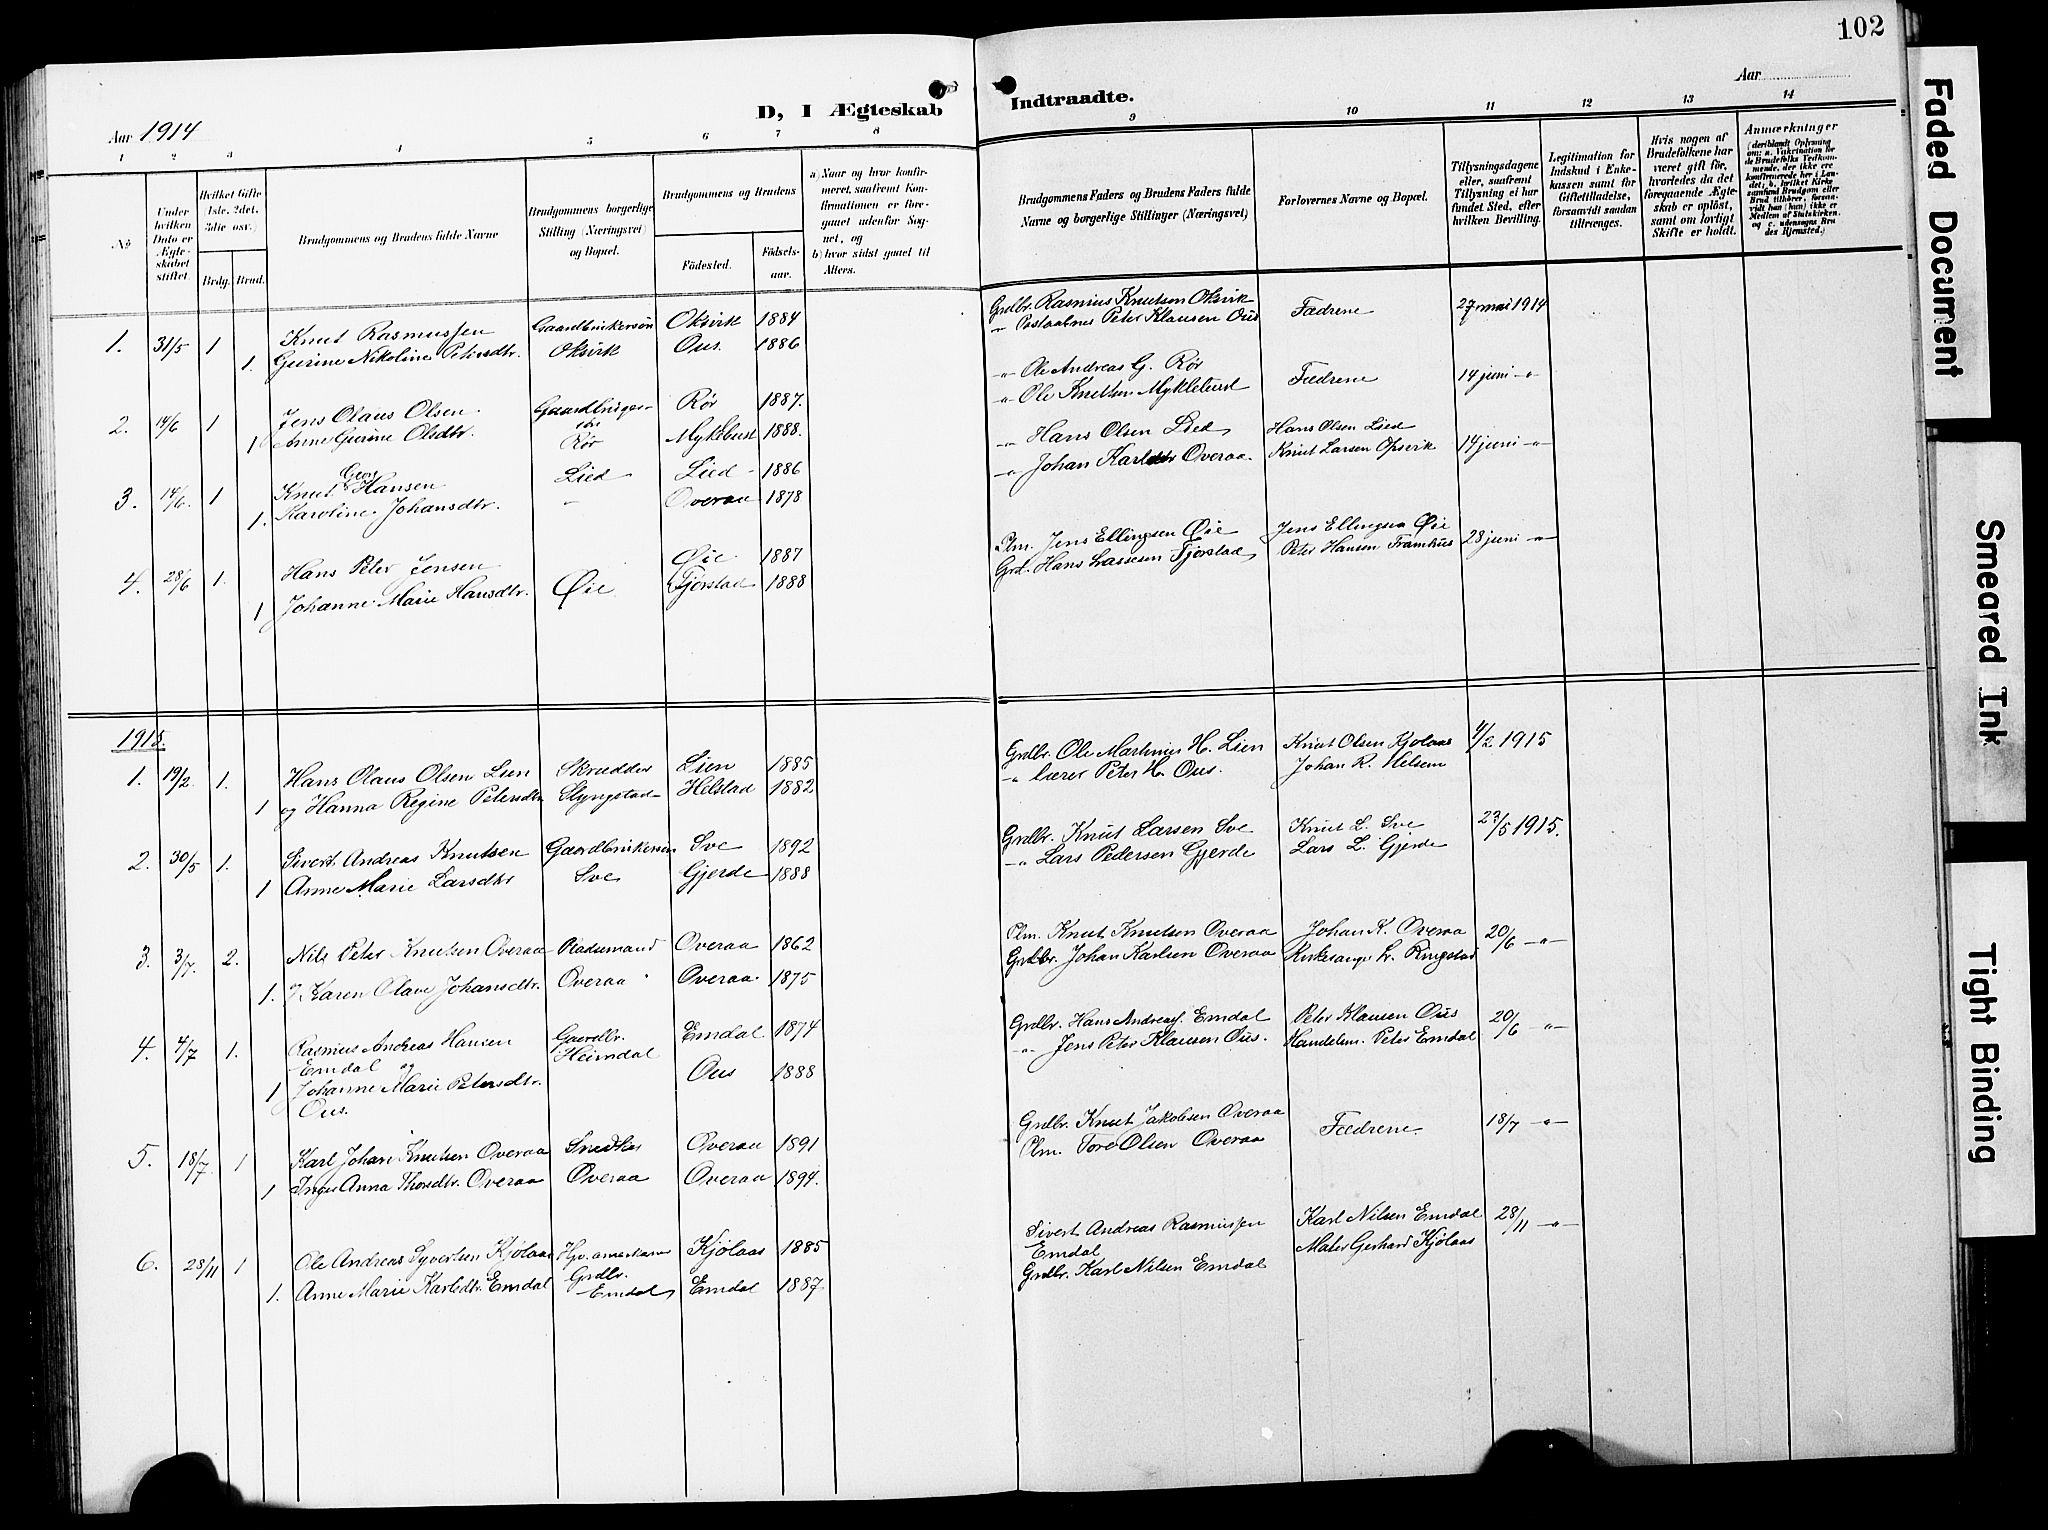 102
D, I Ægteskab Indtraadte.
Aar 1914
Aar
1 2 3 4 5 6 7 8 9 10 11 12 13 14
No
Under hvilken Dato er Ægteskabet stiftet.
Hvilket Gifte (1ste, 2det, 3die osv.)
Brdg. Brud.
Brudgommens og Brudens fulde Navne
Brudgommens borgerlige Stilling (Næringsvei) og Bopæl.
Brudgommens og Brudens
Födested. Födselsaar.
a) Naar og hvor konfirmeret, saafremt Konfirmationen er foregaaet udenfor Sognet, og
b) hvor sidst gaaet til Alters.
Brudgommens Faders og Brudens Faders fulde Navne og borgerlige Stillinger (Næringsvei)
Forlovernes Navne og Bopæl.
Tillysningsdagene eller, saafremt Tillysning ei har fundet Sted, efter hvilken Bevilling.
Legitimation for Indskud i Enkekassen samt for Giftetilladelse, forsaavidt saadan tiltrænges.
Hvis nogen af Brudefolkene har været gift för, hvorledes da det foregaaende Ægteskab er oplöst, samt om lovligt Skifte er holdt.
Anmærkninger
1. 31/5 1 Knut Rasmussen Gaardbrukersøn Oksvik 1884 Grdbr. Rasmus Knutsen Oksvik Fædrene 27 mai 1914
1. Gurine Nikoline Petersdtr. Oksvik Ous. 1886 -"- Postaabner Peter Klausen Ous
2. 14/6 1 Jens Olaus Olsen Rør 1887. -"- Ole Andreas G. Rør Fædrene 14 juni -"-
1 Anne Gurine Olsdtr. Rør Myklebust 1888. -"- Ole Knutsen Myklebust
3. 14/6. 1 Knut Hansen Lied Lied 1886 -"- Hans Olsen Lied Hans Olsen Lied 14 juni -"-
1. Karoline Johansdtr. - Overaa 1878 -"- Johan Overaa Knut Larsen Opsvik
4. 28/6 1. Hans Peter Jensen Øie 1887 Plm. Jens Ellingsen Øie Jens Ellingsen Øie 28 juni -"-
1 Johanne Marie Hansdtr. Øie Fjørstad 1888 Grd. Hans Lassesen Fjørstad Peter Hansen Framhus
1915.
1. 19/2 1. Hans Olaus Olsen Lien Skrædder Lien 1885 Grdbr. Ole Martinus H. Lien Knut Olsen Kjølaas 4/2 1915
1 og Hanna Regine Petersdtr Slyngstad Helstad 1882 -"- lærer Peter H. Ous. Johan R. Helsem
2. 30/5 1. Sivert Andreas Knutsen Gaardbrukersøn Sve 1892 Grdbr. Knut Larsen Sve Knut L. Sve 23/5 1915.
1 Anne Marie Larsdtr Sve Gjerde 1888 -"- Lars Pedersen Gjerde Lars L. Gjerde
3. 3/7. 2. Nils Peter Knutsen Overaa Pladsemand Overaa 1862 Plm. Knut Knutsen Overaa Johan K. Overaa 20/6 -"-
1. Karen Olave Johansdtr. Overaa Overaa 1875 Grdbr. Johan Karlsen Overaa Kirkesanger L. Ringstad
4. 4/7 1. Rasmus Andreas Hansen Gaardbr. Emdal 1874 Grdbr. Hans Andreas. Emdal Peter Klausen Ous 20/6 -"-
Emdal og Heimdal -"- Jens Peter Klausen Ous. Handelsm. Peter Emdal
1 Johanne Marie Petersdtr. Ous 1888
Ous.
5. 18/7 1 Karl Johan Knutsen Overaa Snedker Overaa 1891 Grdbr. Knut Jakobsen Overaa Fædrene. 18/7 -"-
1 Inger Anna Thoredtr. Overaa Overaa Overaa 1894. Plm. Tore Olsen Overaa
6. 28/11 1 Ole Andreas Syvertsen Kjølaas Kjølaas 1885 Sivert Andreas Rasmussen Karl Nilsen Emdal 28/11 -"-
Grdbr. Emdal Mates Gerhard Kjølaas
1. Anne Marie Karlsdtr. Emdal Emdal Emdal 1887. Grdbr. Karl Nilsen Emdal
Faded Document
Smeared Ink
Tight Binding